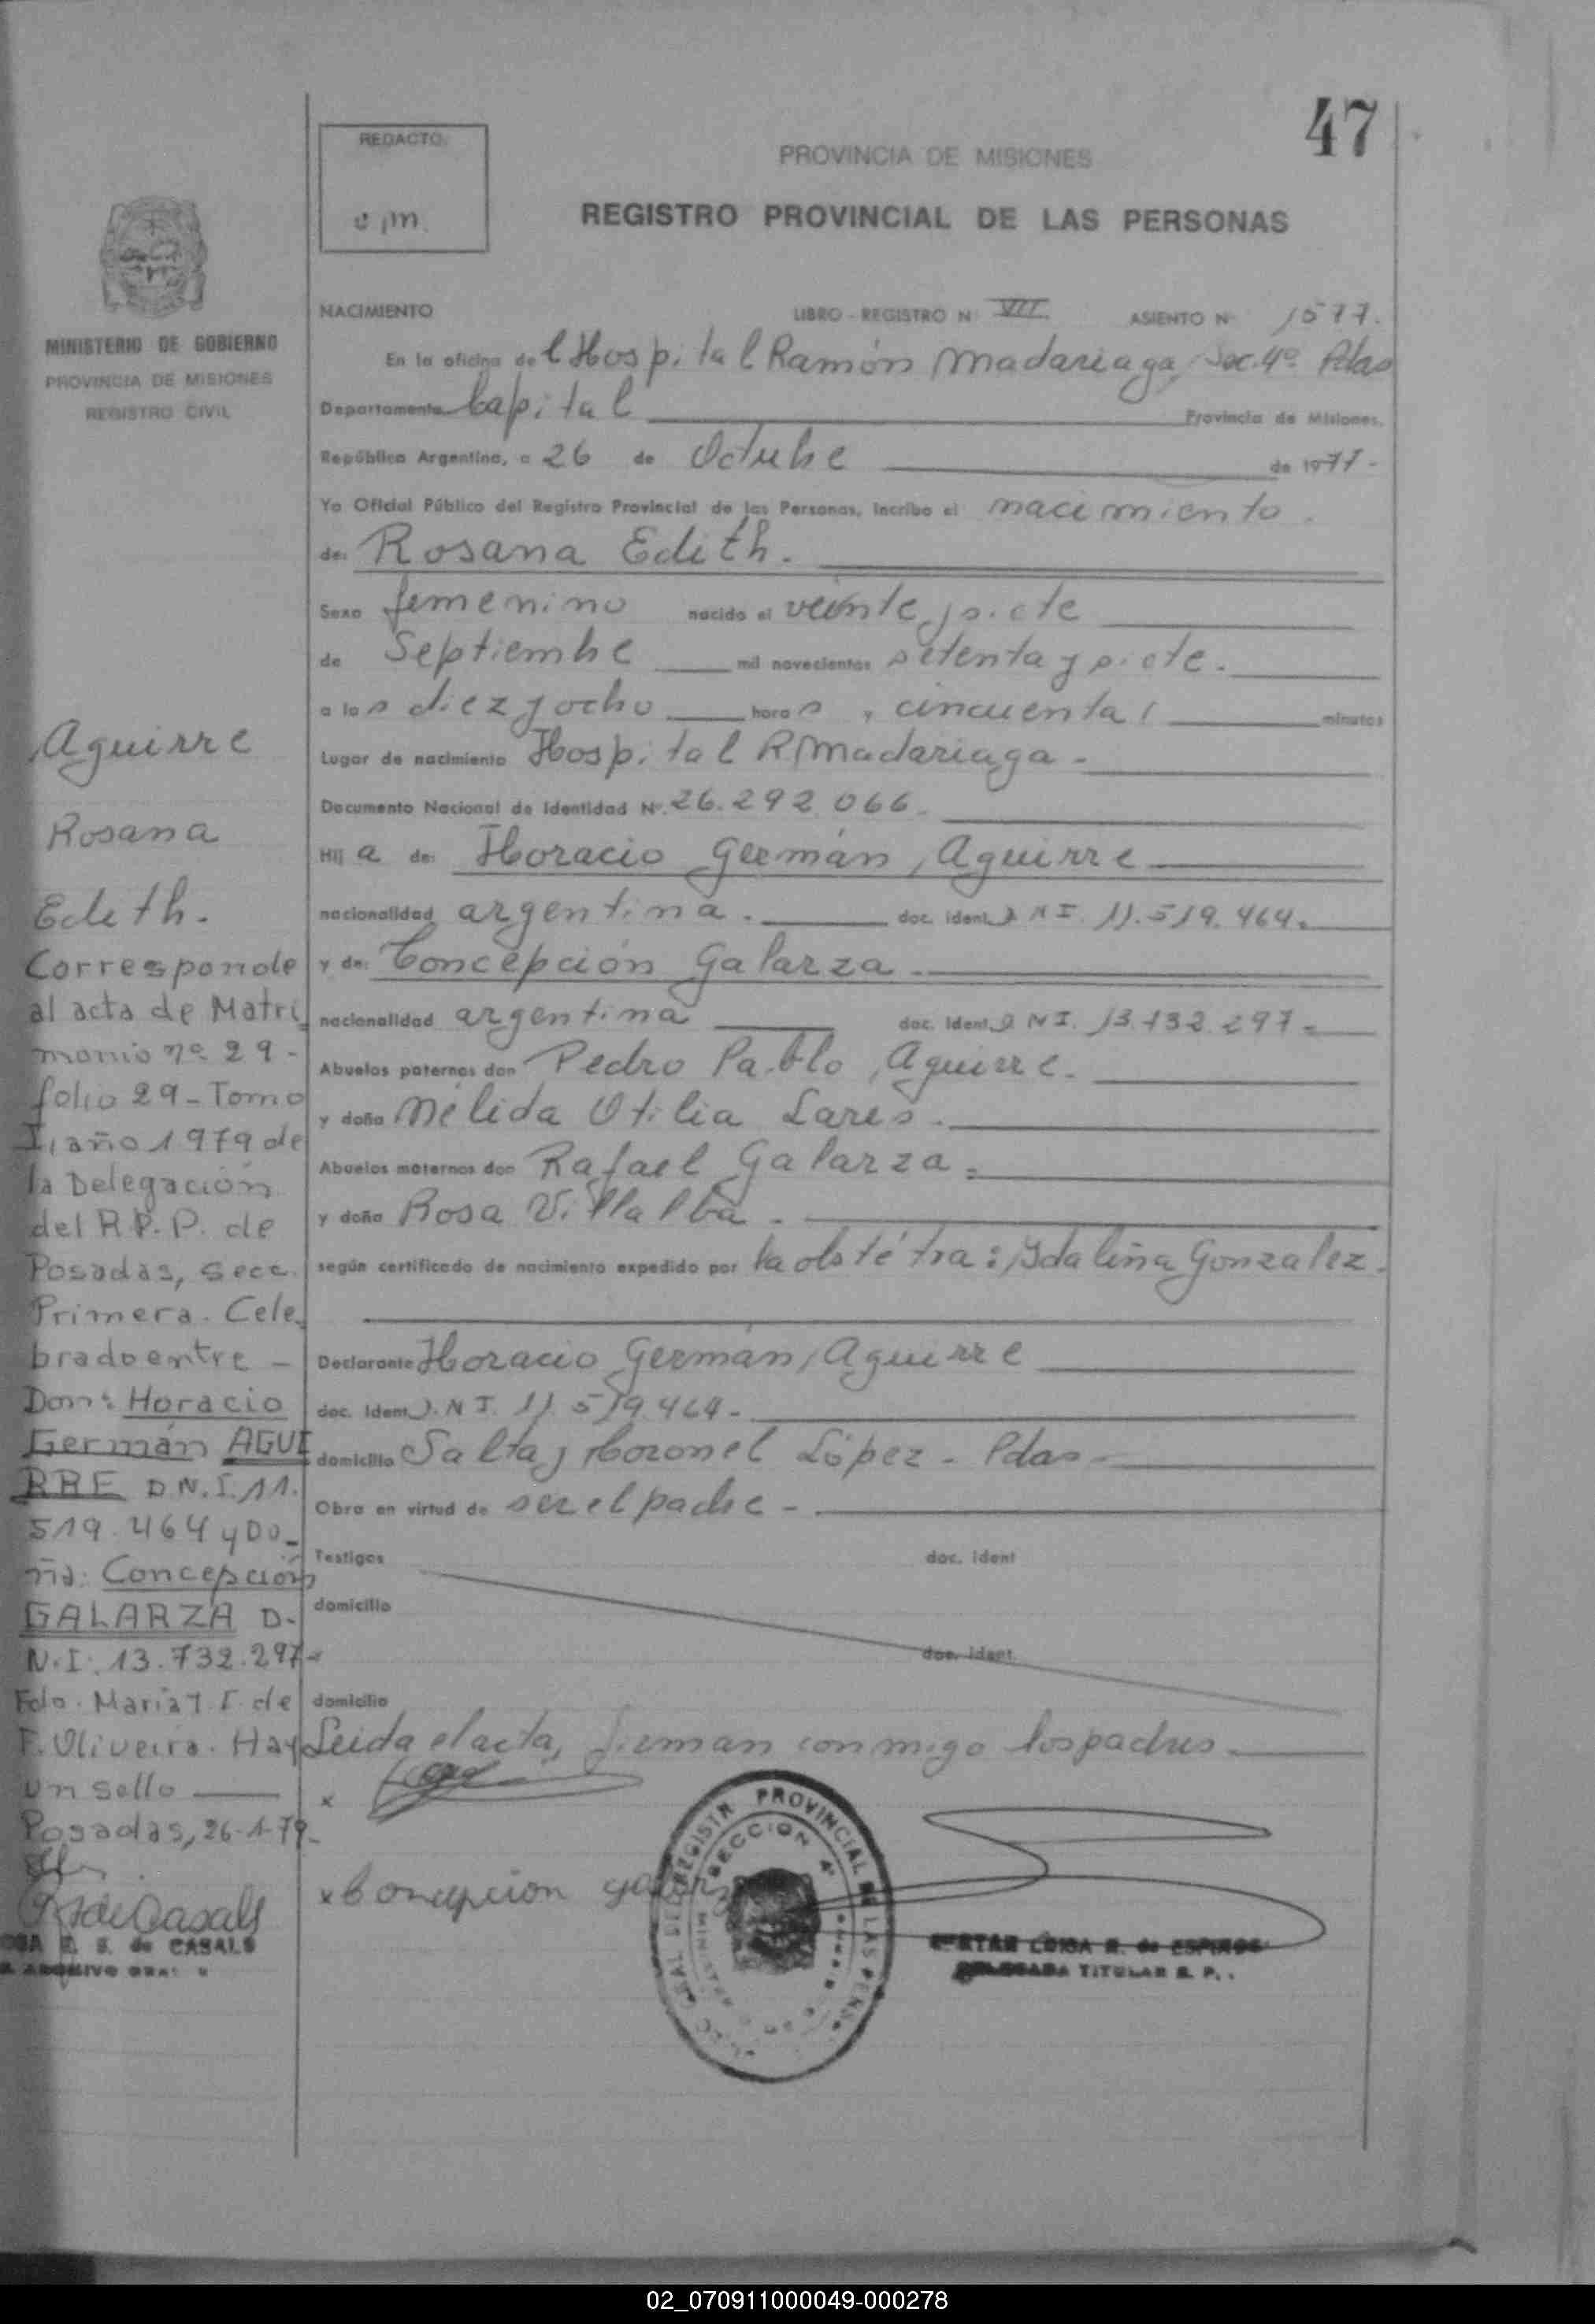 47
REDACTO:
e m.
PROVINCIA DE MISIONES
REGISTRO PROVINCIAL DE LAS PERSONAS
MINISTERIO DE GOBIERNO
PROVINCIA DE MISIONES
REGISTRO CIVIL
NACIMIENTO LIBRO - REGISTRO N VII ASIENTO N 1577.
En la oficina del Hospital Ramón Madariaga, Sec. 4º Pdas
Departamento Capital Provincia de Misiones,
República Argentina, a 26 de Octubre de 1977-
Yo Oficial Público del Registro Provincial de las Personas, incribo el nacimiento.
de: Rosana Edith.
Sexo femenino nacido el veinte y siete
de Septiembre mil novecientos setenta y siete.
a las diez y ocho horas y cincuenta minutos
Lugar de nacimiento Hospital R Madariaga -
Documento Nacional de Identidad Nº. 26.292.066.
Hij a de: Horacio Germán, Aguirre
nacionalidad argentina. doc. ident. D.N.I. 11.519.464.
y de: Concepción Galarza.
nacionalidad argentina doc. ident. D.N.I. 13.732.297-
Abuelos paternos don Pedro Pablo, Aguirre.
y doña Nélida Otilia Lares.
Abuelos maternos don Rafael Galarza.
y doña Rosa Villalba.
según certificado de nacimiento expedido por la obstétra: Ydalina Gonzalez.
Declarante Horacio Germán, Aguirre
doc. ident D.N.I. 11.519.464-
domicilio Salta y Coronel López - Pdas-
Obra en virtud de ser el padre -
Testigos doc. ident
domicilio
doc. ident.
domicilio
Leida el acta, firman conmigo los padres
x
x Concepcion galarza
REGISTR PROVINCIAL DE LAS PERS.
SECCION 4ª
LUISA R. de ESPINOS
TITULAR R. P.
Aguirre
Rosana
Edith.
Corresponde
al acta de Matri
monio nº 29-
folio 29- Tomo
I, año 1979 de
la Delegación
del R.P.P. de
Posadas, Secc.
Primera. Cele
brado entre -
Don: Horacio
Germán AGUI
RRE D.N.I. 11.
519.464 y Do-
ña: Concepción
GALARZA D.
N.I. 13.732.297-
Fdo. María T. I. de
F. Oliveira. Hay
un sello
Posadas, 26-1-79-
R S de Casals
E. S. de CASALS
ARCHIVO GRAL
02_070911000049-000278